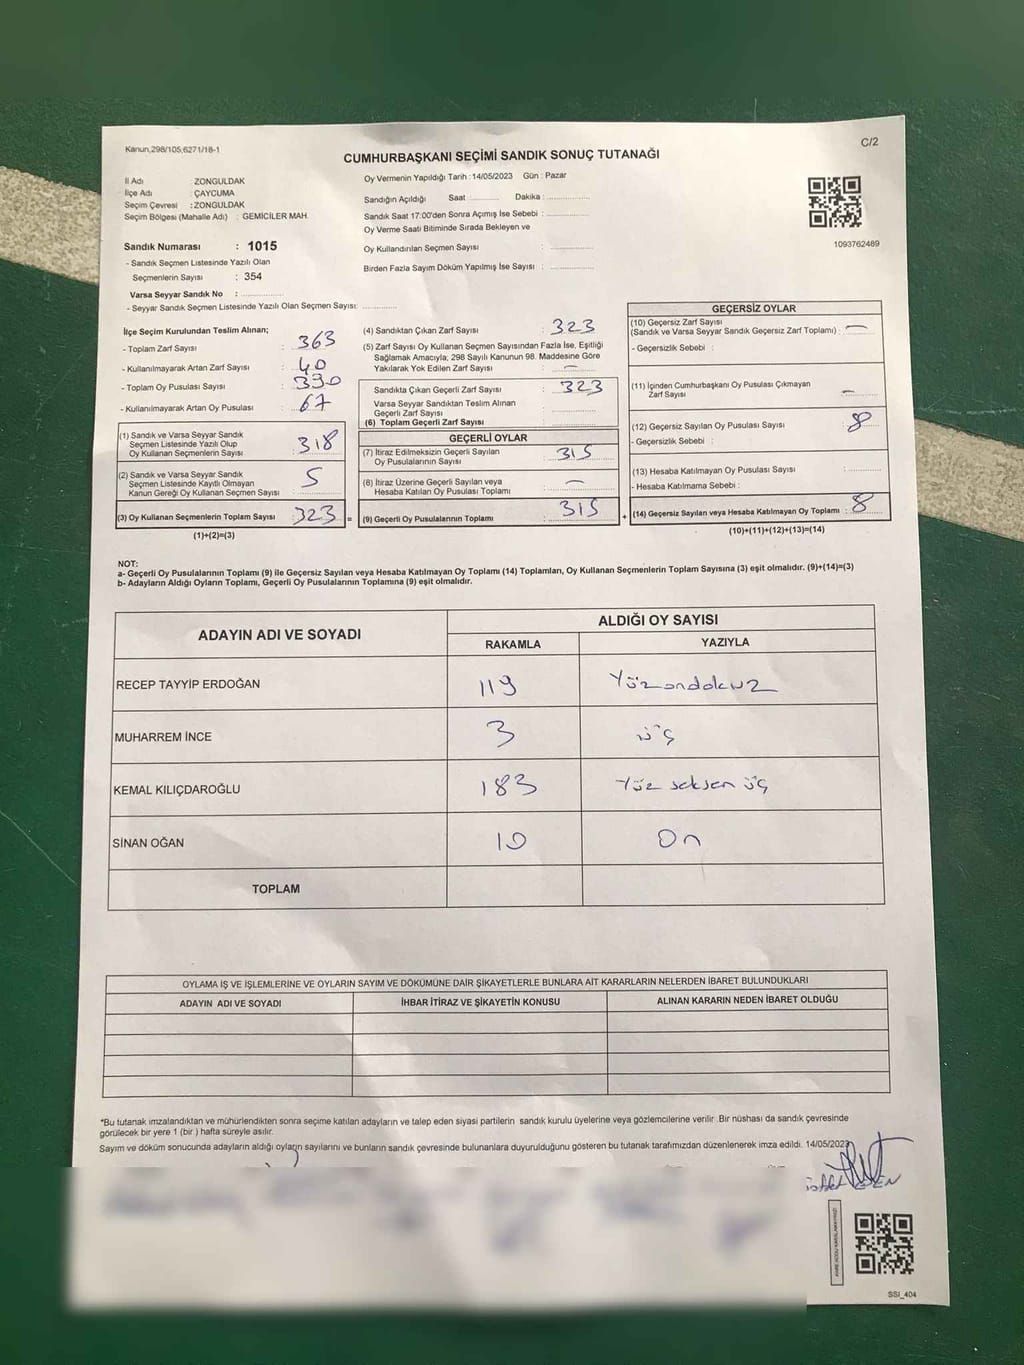 Kanun,298/105,6271/18-1
C/2
CUMHURBAŞKANI SEÇİMİ SANDIK SONUÇ TUTANAĞI
İl Adı : ZONGULDAK
İlçe Adı : ÇAYCUMA
Seçim Çevresi : ZONGULDAK
Seçim Bölgesi (Mahalle Adı) : GEMİCİLER MAH.
Sandık Numarası : 1015
- Sandık Seçmen Listesinde Yazılı Olan
Seçmenlerin Sayısı : 354
Varsa Seyyar Sandık No : ............
- Seyyar Sandık Seçmen Listesinde Yazılı Olan Seçmen Sayısı: ............
Oy Vermenin Yapıldığı Tarih :14/05/2023 Gün : Pazar
Sandığın Açıldığı Saat ............ Dakika : ............
Sandık Saat 17:00'den Sonra Açımış İse Sebebi : ............
Oy Verme Saati Bitiminde Sırada Bekleyen ve
Oy Kullandırılan Seçmen Sayısı : ............
Birden Fazla Sayım Döküm Yapılmış İse Sayısı : ............
1093762489
İlçe Seçim Kurulundan Teslim Alınan;
- Toplam Zarf Sayısı : 363
- Kullanılmayarak Artan Zarf Sayısı : 40
- Toplam Oy Pusulası Sayısı : 390
- Kullanılmayarak Artan Oy Pusulası : 67
(1) Sandık ve Varsa Seyyar Sandık
Seçmen Listesinde Yazılı Olup
Oy Kullanan Seçmenlerin Sayısı : 318
(2) Sandık ve Varsa Seyyar Sandık
Seçmen Listesinde Kayıtlı Olmayan
Kanun Gereği Oy Kullanan Seçmen Sayısı : 5
(3) Oy Kullanan Seçmenlerin Toplam Sayısı : 323 =
(1)+(2)=(3)
(4) Sandıktan Çıkan Zarf Sayısı : 323
(5) Zarf Sayısı Oy Kullanan Seçmen Sayısından Fazla İse, Eşitliği
Sağlamak Amacıyla; 298 Sayılı Kanunun 98. Maddesine Göre
Yakılarak Yok Edilen Zarf Sayısı : —
Sandıkta Çıkan Geçerli Zarf Sayısı : 323
Varsa Seyyar Sandıktan Teslim Alınan
Geçerli Zarf Sayısı : ............
(6) Toplam Geçerli Zarf Sayısı : ............
GEÇERLİ OYLAR
(7) İtiraz Edilmeksizin Geçerli Sayılan
Oy Pusulalarının Sayısı : 315
(8) İtiraz Üzerine Geçerli Sayılan veya
Hesaba Katılan Oy Pusulası Toplamı : —
(9) Geçerli Oy Pusulalarının Toplamı : 315 +
GEÇERSİZ OYLAR
(10) Geçersiz Zarf Sayısı
(Sandık ve Varsa Seyyar Sandık Geçersiz Zarf Toplamı) : —
- Geçersizlik Sebebi :
(11) İçinden Cumhurbaşkanı Oy Pusulası Çıkmayan
Zarf Sayısı : —
(12) Geçersiz Sayılan Oy Pusulası Sayısı : 8
- Geçersizlik Sebebi :
(13) Hesaba Katılmayan Oy Pusulası Sayısı : ............
- Hesaba Katılmama Sebebi :
(14) Geçersiz Sayılan veya Hesaba Katılmayan Oy Toplamı : 8
(10)+(11)+(12)+(13)=(14)
NOT:
a- Geçerli Oy Pusulalarının Toplamı (9) ile Geçersiz Sayılan veya Hesaba Katılmayan Oy Toplamı (14) Toplamları, Oy Kullanan Seçmenlerin Toplam Sayısına (3) eşit olmalıdır. (9)+(14)=(3)
b- Adayların Aldığı Oyların Toplamı, Geçerli Oy Pusulalarının Toplamına (9) eşit olmalıdır.
ADAYIN ADI VE SOYADI
ALDIĞI OY SAYISI
RAKAMLA YAZIYLA
RECEP TAYYİP ERDOĞAN 119 Yüzondokuz
MUHARREM İNCE 3 üç
KEMAL KILIÇDAROĞLU 183 Yüz seksen üç
SİNAN OĞAN 10 On
TOPLAM
OYLAMA İŞ VE İŞLEMLERİNE VE OYLARIN SAYIM VE DÖKÜMÜNE DAİR ŞİKAYETLERLE BUNLARA AİT KARARLARIN NELERDEN İBARET BULUNDUKLARI
ADAYIN ADI VE SOYADI İHBAR İTİRAZ VE ŞİKAYETİN KONUSU ALINAN KARARIN NEDEN İBARET OLDUĞU
*Bu tutanak imzalandıktan ve mühürlendikten sonra seçime katılan adayların ve talep eden siyasi partilerin sandık kurulu üyelerine veya gözlemcilerine verilir .Bir nüshası da sandık çevresinde
görülecek bir yere 1 (bir ) hafta süreyle asılır.
Sayım ve döküm sonucunda adayların aldığı oyların sayılarını ve bunların sandık çevresinde bulunanlara duyurulduğunu gösteren bu tutanak tarafımızdan düzenlenerek imza edildi. 14/05/2023
SSI_404